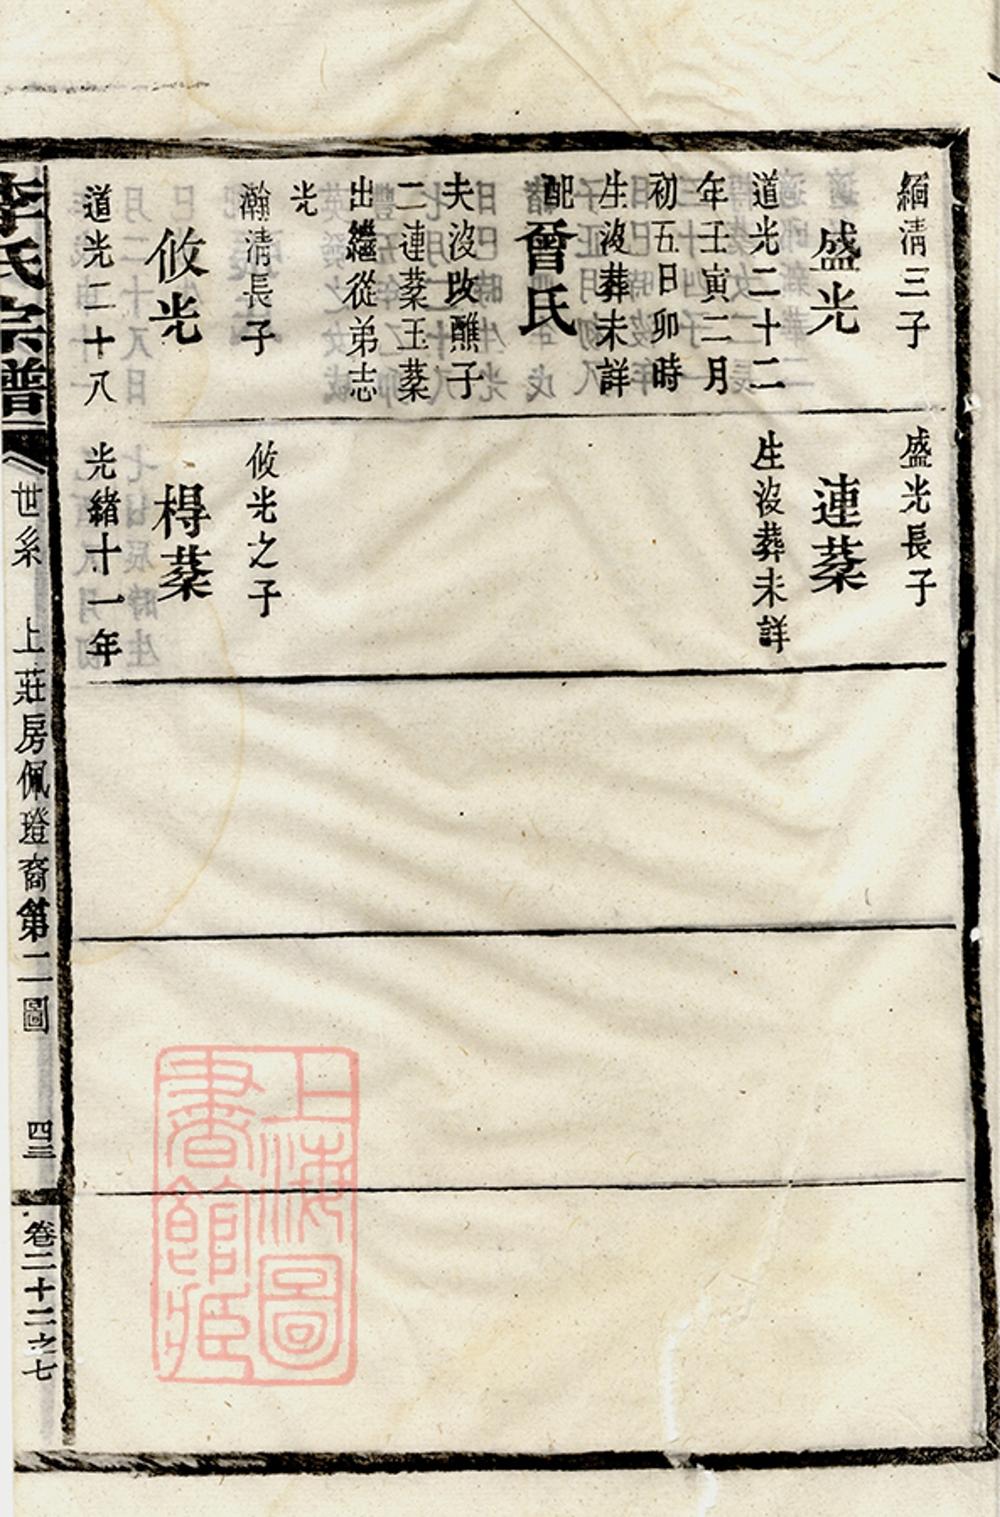 緬清三子
盛光
道光二十二
年壬寅二月
初五日卯時
生沒葬未詳
配曾氏
夫沒改醮子
二連蓁玉蓁
出繼從弟志
光
瀚清長子
攸光
道光二十八
盛光長子
連蓁
生沒葬未詳
攸光之子
榯蓁
光緒十一年
李氏宗譜
世系 上莊房佩璒裔第二圖 四三 卷二十二之七
上海圖
書館藏